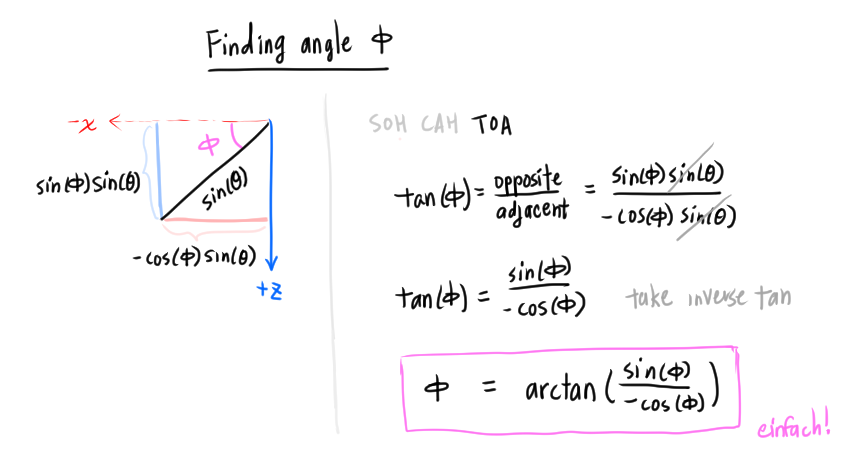 Finding angle ϕ
-x
ϕ
sin(ϕ)sin(θ)
sin(θ)
-cos(ϕ)sin(θ)
+z
SOH CAH TOA
tan(ϕ) = opposite/adjacent = sin(ϕ)sin(θ)/-cos(ϕ)sin(θ)
tan(ϕ) = sin(ϕ)/-cos(ϕ) take inverse tan
ϕ = arctan(sin(ϕ)/-cos(ϕ))
einfach!